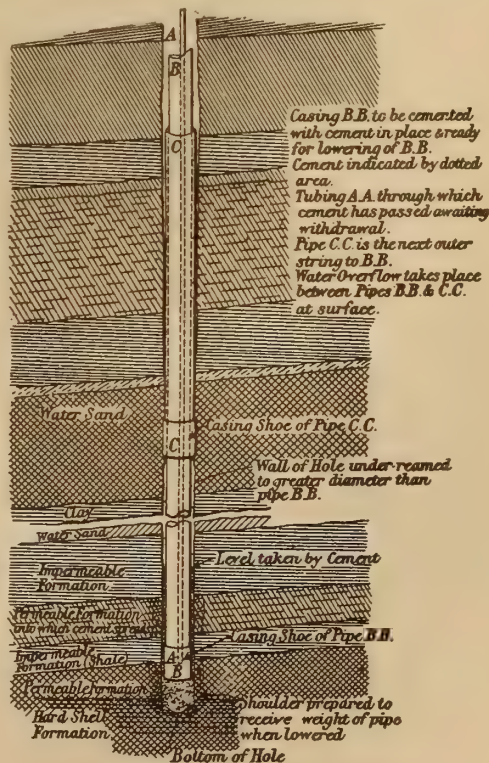 A
B
C
Casing B.B. to be cemented
with cement in place & ready
for lowering of B.B.
Cement indicated by dotted
area.
Tubing A.A. through which
cement has passed awaiting
withdrawal.
Pipe C.C. is the next outer
string to B.B.
Water Overflow takes place
between Pipes B.B. & C.C.
at surface.
Water Sand
Casing Shoe of Pipe C.C.
C
Wall of Hole under-reamed
to greater diameter than
pipe B.B.
Clay
Water Sand
Level taken by Cement
Impermeable
Formation
Permeable Formation
into which cement
Casing Shoe of Pipe B.B.
Impermeable
Formation (Shale)
A
B
Permeable Formation
Shoulder prepared to
receive weight of pipe
when lowered
Hard Shell
Formation
Bottom of Hole